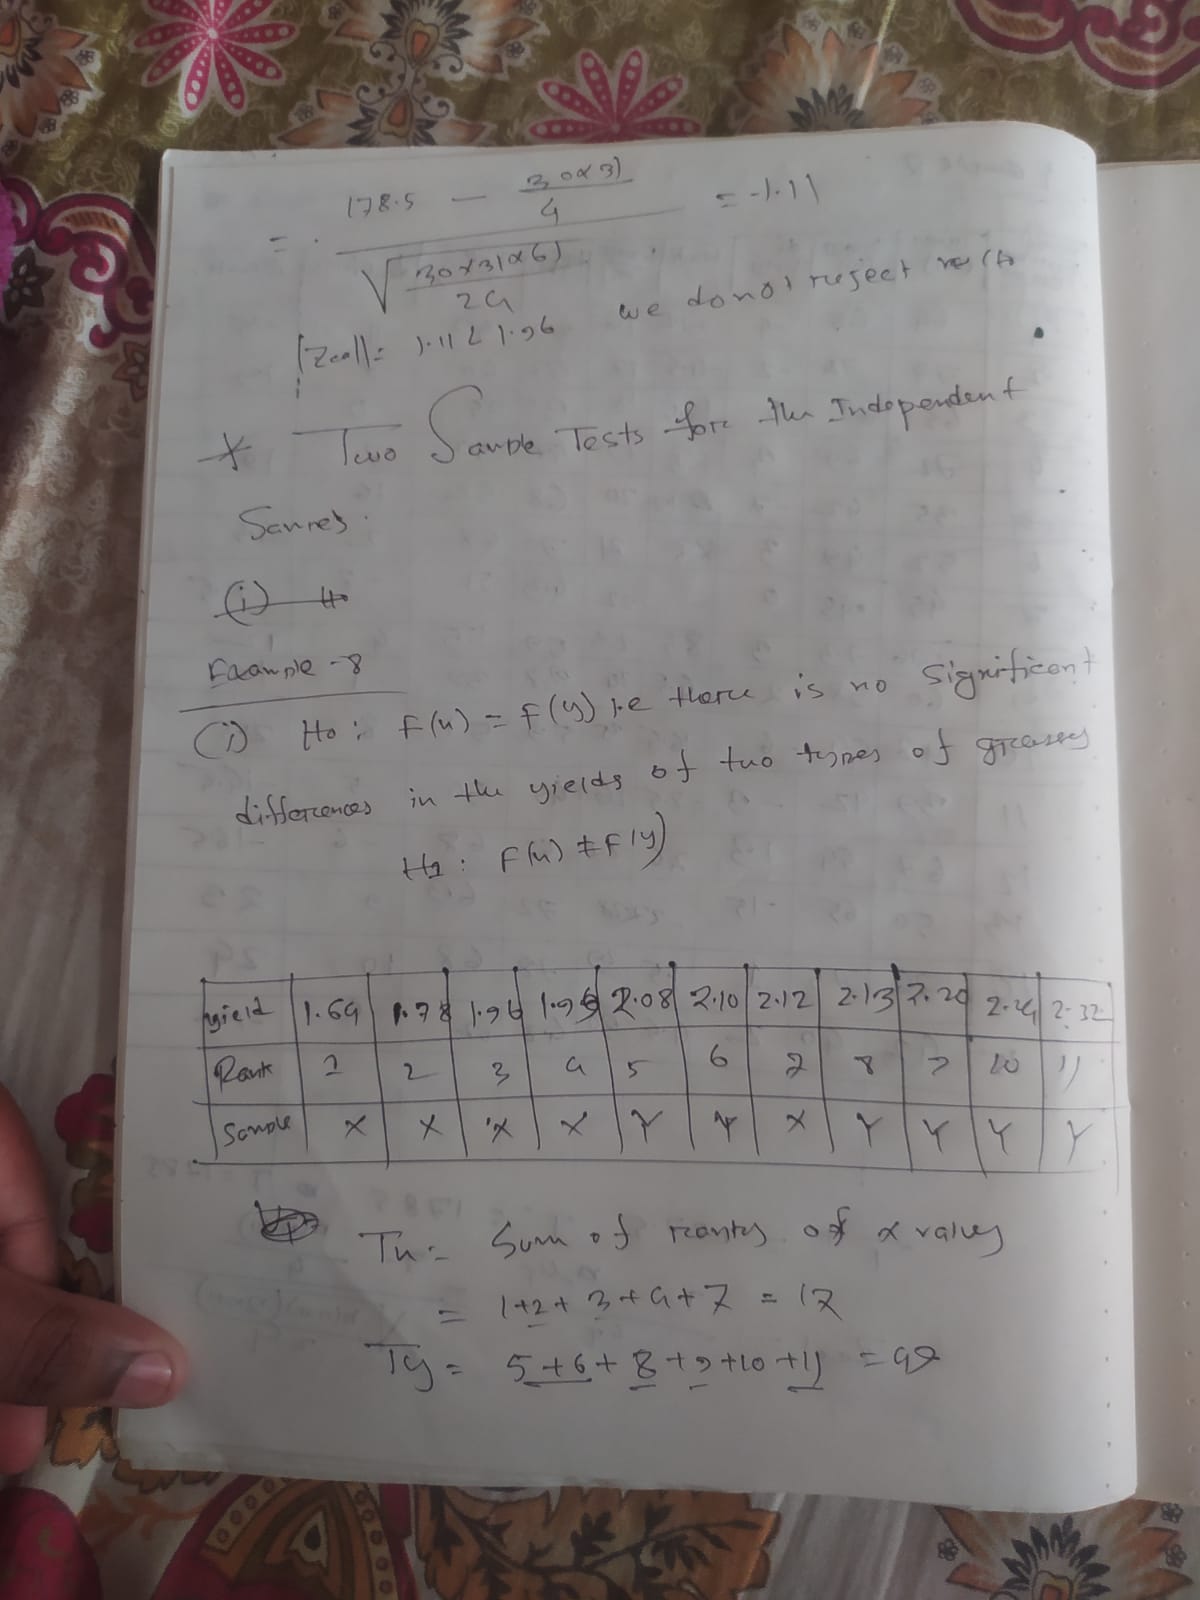 = 178.5 - 30×31/4 / √(30×31×61/24) = -1.11
|Zcal| = 1.11 < 1.96 we do not reject
* Two Sample Tests for the Independent
Example - 8
(i) H0 : F(x) = F(y) i.e there is no significant
differences in the yields of two types of
H1 : F(x) ≠ F(y)
yield 1.64 1.78 1.96 2.08 2.10 2.12 2.13 2.20 2.24 2.32
Rank 1 2 3 4 5 6 7 8 9 10 11
Sample X X X X Y Y X Y Y Y Y
Tx = Sum of ranks of x values
= 1+2+3+4+7 = 17
Ty = 5+6+8+9+10+11 = 49